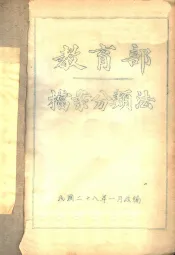 教育部
檔案分類法
民國二十八年一月改編